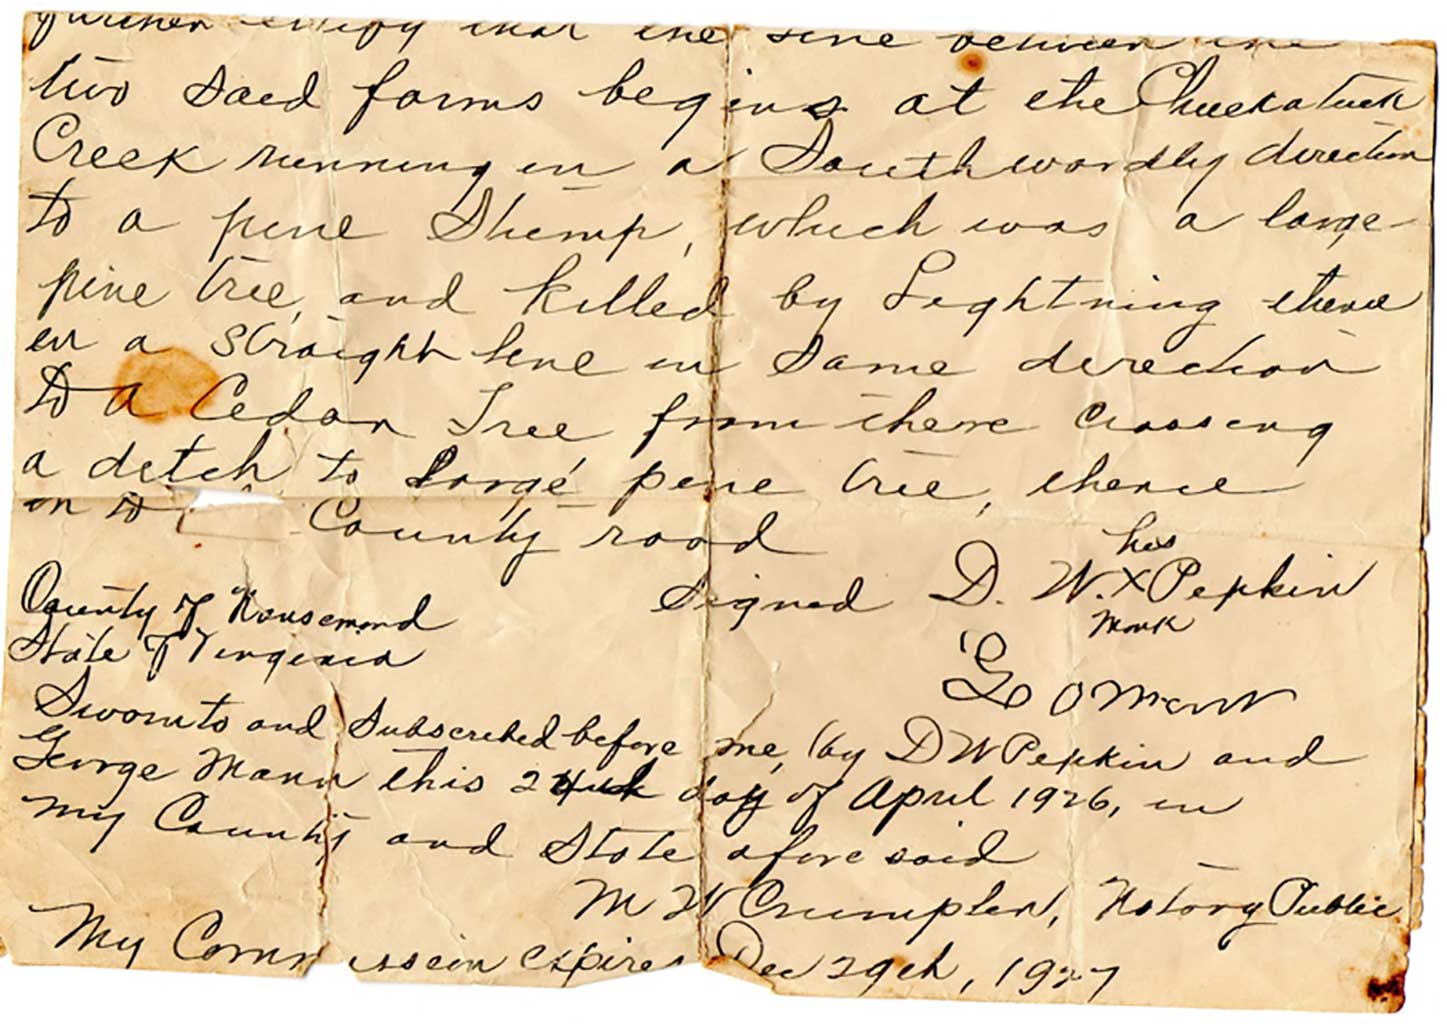 further certify that the line between the
two said farms begins at the Chuckatuck
Creek running in a Southwardly direction
to a pine Stump, which was a large
pine tree, and killed by Lightning thence
in a straight line in same direction
to a Cedar Tree, from there crossing
a ditch to large pine tree, thence
on to County road
his
Signed D. W. X Pepkin
mark
County of Nansemond
State of Virginia
Geo Mann
Sworn to and Subscribed before me, by D W Pepkin and
George Mann this 24th day of April 1926, in
my County and State afore said
M W Crumpler, Notary Public
My Commission expires Dec 29th, 1927